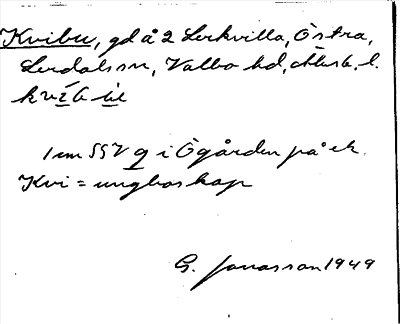 Kvibu, gd å 2 Lerkvilla, Östra,
Lerdals sn, Valbo hd, Älvsb. l.
kvib
1 mm SSV g i Ögården på ek.
Kvi = ungboskap
G. Jonasson 1949